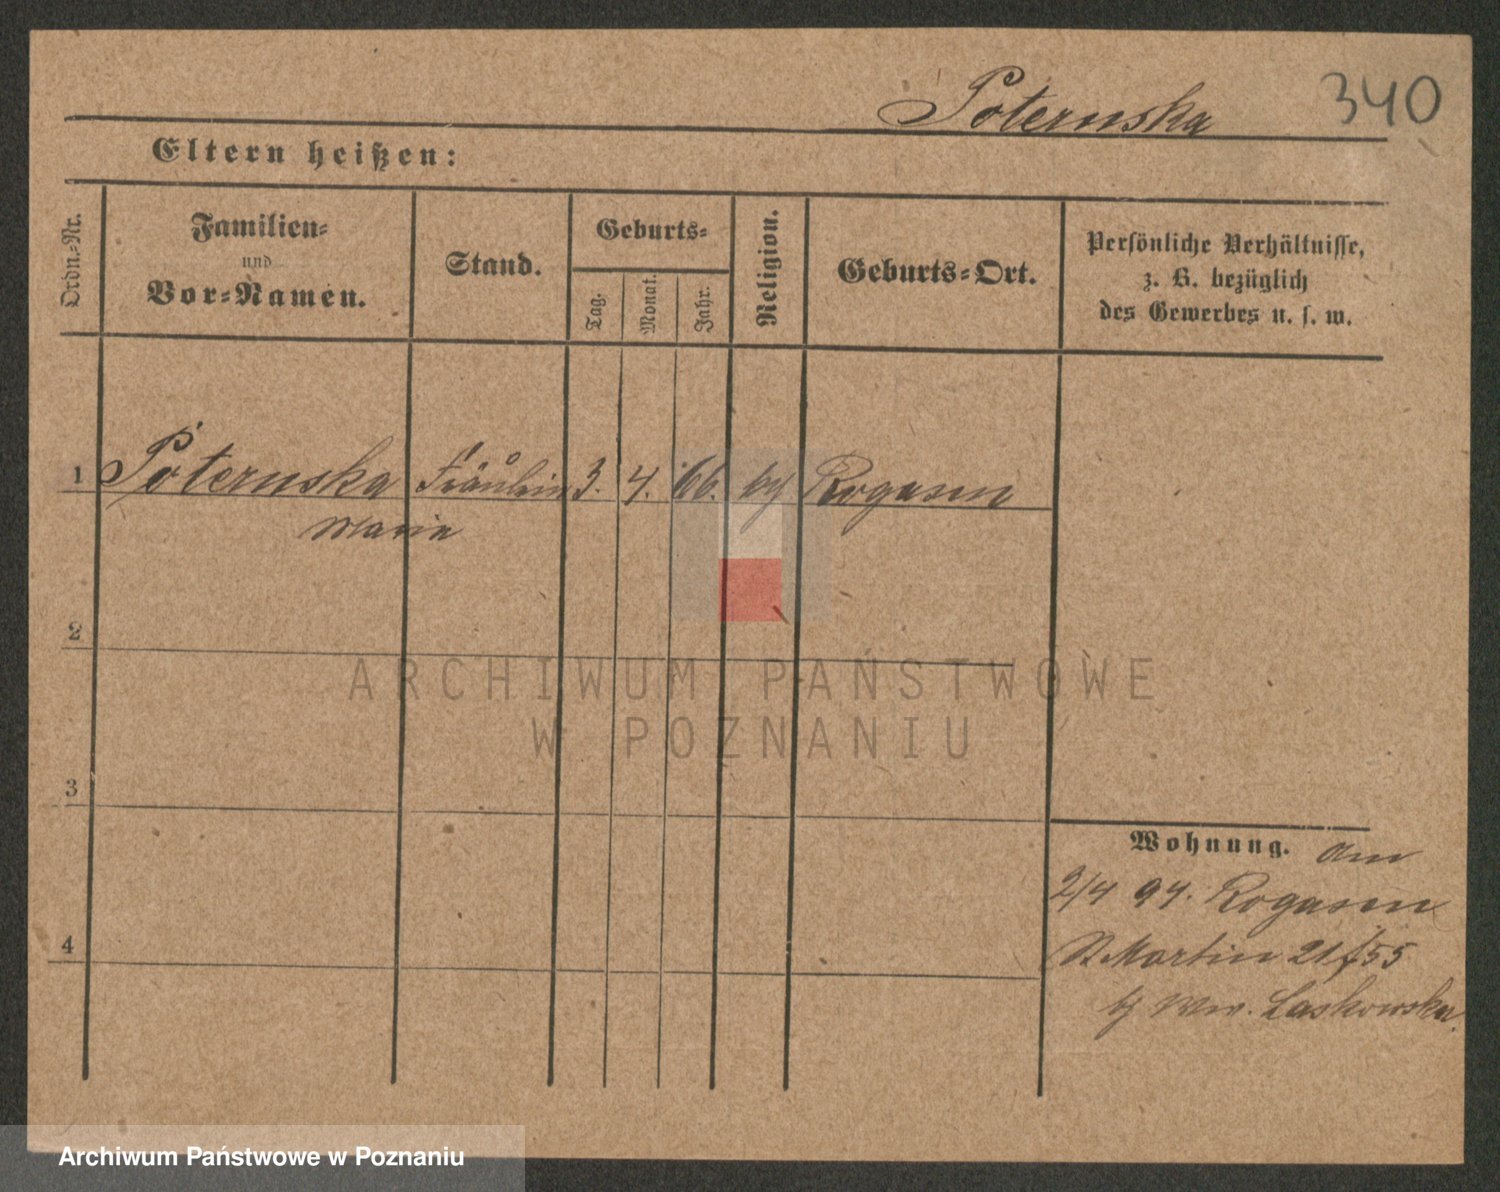 Poternska 340
Eltern heißen:
Ordn.-Nr.
Familien-
und
Vor-Namen.
Stand.
Geburts-
Tag.
Monat.
Jahr.
Religion.
Geburts-Ort.
Persönliche Verhältnisse,
z. B. bezüglich
des Gewerbes u. s. w.
1 Poternska Fräulein 3. 4. 66. Rogasen
Marie
2
3
4
Wohnung. Am
2/4 94. Rogasen
St Martin 21/55
Ww. Laskowska.
ARCHIWUM PAŃSTWOWE
W POZNANIU
Archiwum Państwowe w Poznaniu